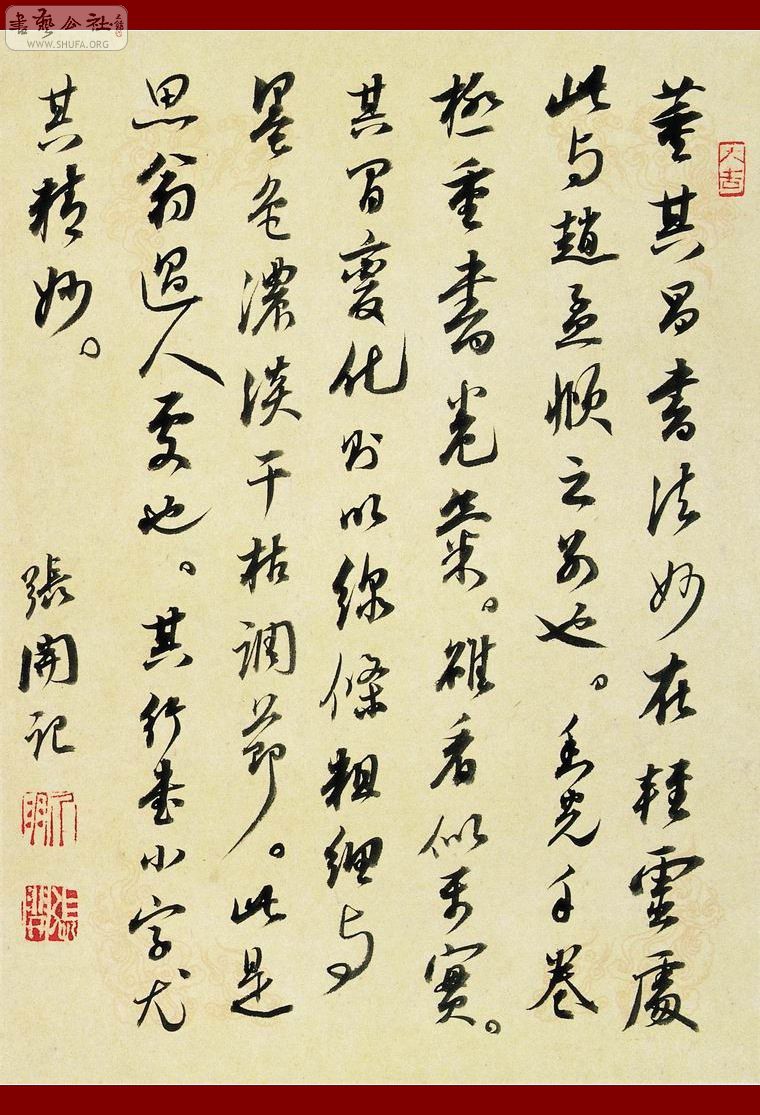 書藝公社
WWW.SHUFA.ORG
董其昌書法妙在輕靈處
此与趙孟頫之別也。香光手卷
極重書卷氣。雖看似平實。
其間變化則以線條粗細与
墨色濃淡干枯調節。此是
思翁過人處也。其行書小字尤
其精妙。
張開記